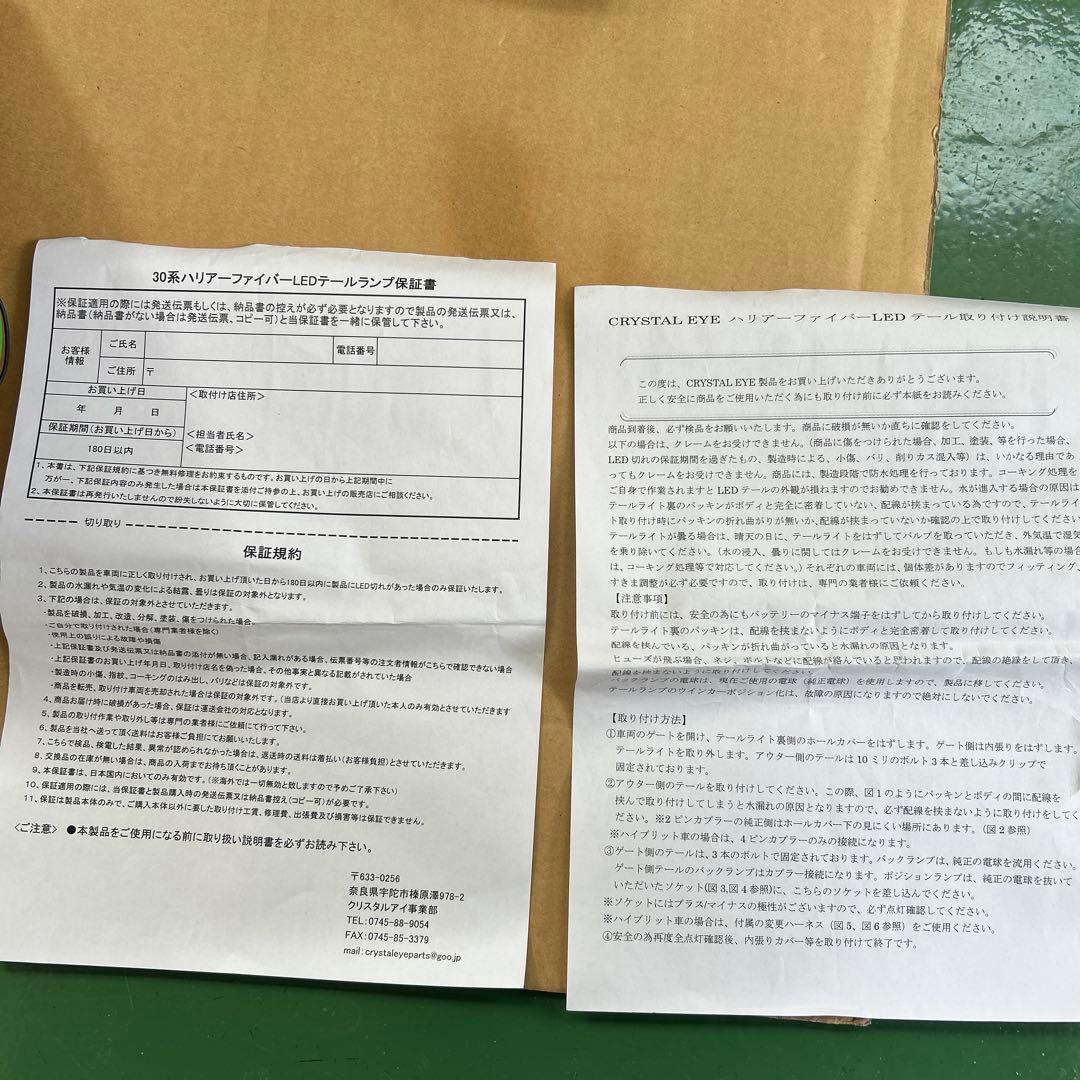 30系ハリアーファイバーLEDテールランプ保証書
※保証適用の際には発送伝票もしくは、納品書の控えが必ず必要となりますので製品の発送伝票又は、
納品書(納品書がない場合は発送伝票、コピー可)と当保証書を一緒に保管して下さい。
お客様
情報
ご氏名
電話番号
ご住所
〒
お買い上げ日
年 月 日
保証期間(お買い上げ日から)
180日以内
<取付け店住所>
<担当者氏名>
<電話番号>
1、本書は、下記保証規約に基づき無料修理をお約束するものです。お買い上げの日から上記期間中に
万が一、下記保証内容のみ発生した場合は本保証書を添付ご持参の上、お買い上げの販売店にご相談ください。
2、本保証書は再発行いたしませんので紛失しないように大切に保管してください。
切り取り
保証規約
1、こちらの製品を車両に正しく取り付けされ、お買い上げ頂いた日から180日以内に製品にLED切れがあった場合のみ保証いたします。
2、製品の水漏れや気温の変化による結露、曇りは保証の対象外となります。
3、下記の場合は、保証の対象外とさせていただきます。
・製品を破損、加工、改造、分解、塗装、傷をつけられた場合。
・ご自分で取り付けされた場合(専門業者様を除く)
・使用上の誤りによる故障や損傷
・上記保証書及び発送伝票又は納品書の添付が無い場合、記入漏れがある場合、伝票番号等の注文者情報がこちらで確認できない場合
・上記保証書のお買い上げ年月日、取付け店名を偽った場合、その他事実と異なる記載がされていた場合
・製造時の小傷、指紋、コーキングのはみ出し、バリなどは保証の対象外です。
・商品を転売、取り付け車両を売却された場合は保証の対象外です。(当店より直接お買い上げ頂いた本人のみ有効とさせていただきます
4、商品お届け時に破損があった場合、保証は運送会社の対応となります。
5、製品の取り付作業や取り外し等は専門の業者様にご依頼にて行って下さい。
6、製品を当社へ送って頂く送料はお客様ご負担にてお願いいたします。
7、こちらで検品、検電した結果、異常が認められなかった場合は、返送時の送料は着払い(お客様負担)とさせていただきます。
8、交換品の在庫が無い場合は、商品の入荷までお待ち頂くことがあります。
9、本保証書は、日本国内においてのみ有効です。(※海外では一切無効と致しますので予めご了承下さい)
10、保証適用の際には、当保証書と製品購入時の発送伝票又は納品書控え(コピー可)が必要です。
11、保証は製品本体のみで、ご購入本体以外に要した取り付け工賃、修理費、出張費及び損害等は保証できません。
<ご注意> ●本製品をご使用になる前に取り扱い説明書を必ずお読み下さい。
〒633-0256
奈良県宇陀市榛原澤978-2
クリスタルアイ事業部
TEL:0745-88-9054
FAX:0745-85-3379
mail:crystaleyeparts@goo.jp
CRYSTAL EYE ハリアーファイバーLED テール取り付け説明書
この度は、CRYSTAL EYE 製品をお買い上げいただきありがとうございます。
正しく安全に商品をご使用いただく為にも取り付け前に必ず本紙をお読みください。
商品到着後、必ず検品をお願いいたします。商品に破損が無いか直ちに確認をしてください。
以下の場合は、クレームをお受けできません。(商品に傷をつけられた場合、加工、塗装、等を行った場合、
LED 切れの保証期間を過ぎたもの、製造時による、小傷、バリ、削りカス混入等)は、いかなる理由であ
ってもクレームをお受けできません。商品には、製造段階で防水処理を行っております。コーキング処理を
ご自身で作業されますと LED テールの外観が損ねますのでお勧めできません。水が進入する場合の原因は
テールライト裏のパッキンがボディと完全に密着していない、配線が挟まっている為ですので、テールライ
ト取り付け時にパッキンの折れ曲がりが無いか、配線が挟まっていないか確認の上で取り付けしてください
テールライトが曇る場合は、晴天の日に、テールライトをはずしてバルブを取っていただき、外気温で湿気
を乗り除いてください。(水の浸入、曇りに関してはクレームをお受けできません。もしも水漏れ等の場合
は、コーキング処理等で対応してください。)それぞれの車両には、個体差がありますのでフィッティング、
すきま調整が必ず必要ですので、取り付けは、専門の業者様にご依頼ください。
【注意事項】
取り付け前には、安全の為にもバッテリーのマイナス端子をはずしてから取り付けしてください。
テールライト裏のパッキンは、配線を挟まないようにボディと完全密着して取り付けしてください。
配線を挟んでいる、パッキンが折れ曲がっていると水漏れの原因となります。
ヒューズが飛ぶ場合、ネジ、ボルトなどに配線が絡んでいると思われますので、配線の絶縁をして頂き、
配線を挟まないように取り付けしてください。
バックランプの電球は、現在ご使用の電球(純正電球)を使用しますので、製品に移してください。
テールランプのウインカーポジション化は、故障の原因になりますので絶対にしないでください。
【取り付け方法】
①車両のゲートを開け、テールライト裏側のホールカバーをはずします。ゲート側は内張りをはずします。
テールライトを取り外します。アウター側のテールは 10 ミリのボルト 3 本と差し込みクリップで
固定されております。
②アウター側のテールを取り付けしてください。この際、図 1 のようにパッキンとボディの間に配線を
挟んで取り付けしてしまうと水漏れの原因となりますので、必ず配線を挟まないように取り付けをしてく
ださい。※2 ピンカプラーの純正側はホールカバー下の見にくい場所にあります。(図 2 参照)
※ハイブリット車の場合は、4 ピンカプラーのみの接続になります。
③ゲート側のテールは、3 本のボルトで固定されております。バックランプは、純正の電球を流用ください。
ゲート側テールのバックランプはカプラー接続になります。ポジションランプは、純正の電球を抜いて
いただいたソケット(図 3,図 4 参照)に、こちらのソケットを差し込んでください。
※ソケットにはプラス/マイナスの極性がございますので、必ず点灯確認してください。
※ハイブリット車の場合は、付属の変更ハーネス(図 5、図 6 参照)をご使用ください。
④安全の為再度全点灯確認後、内張りカバー等を取り付けて終了です。